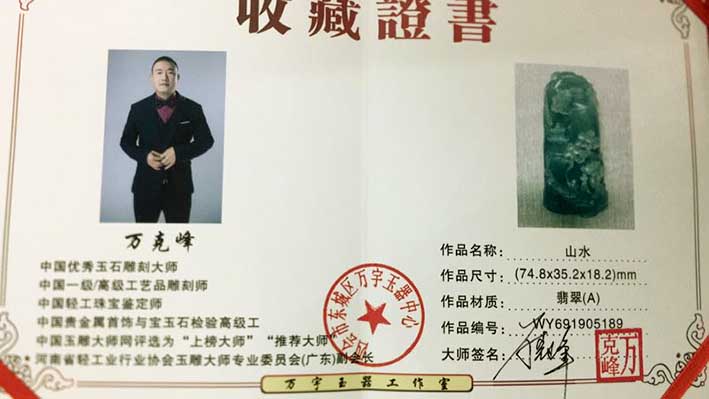 收藏證書
万克峰
中国优秀玉石雕刻大师
中国一级/高级工艺品雕刻师
中国轻工珠宝鉴定师
中国贵金属首饰与宝玉石检验高级工
中国玉雕大师网评选为“上榜大师”“推荐大师”
河南省轻工业行业协会玉雕大师专业委员会(广东)副会长
会市东城区万宇玉器中心
作品名称: 山水
作品尺寸: (74.8x35.2x18.2)mm
作品材质: 翡翠(A)
作品编号: WY691905189
大师签名:
万克峰
万宇玉器工作室